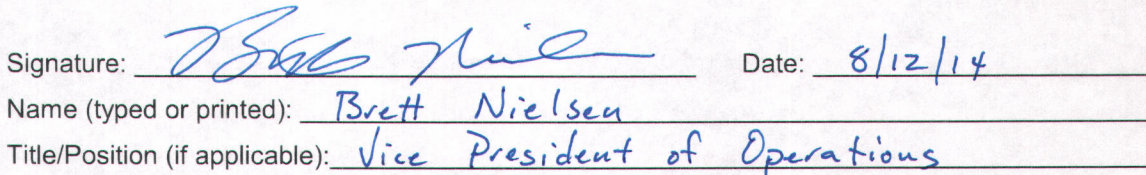 Signature: Brett Nielsen Date: 8/12/14
Name (typed or printed): Brett Nielsen
Title/Position (if applicable): Vice President of Operations